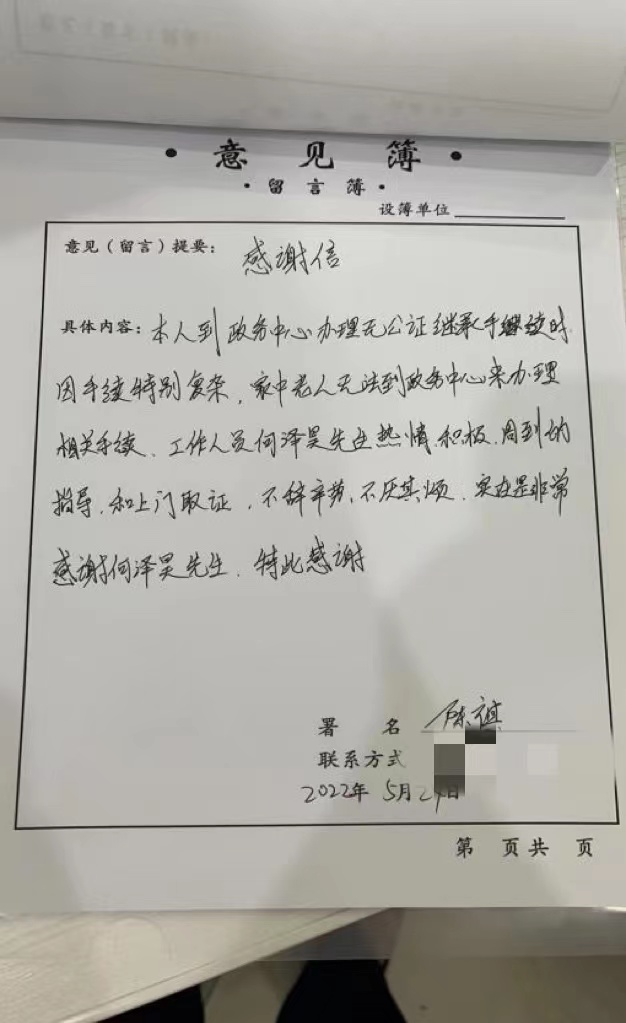 ·意见簿·
·留言簿·
设簿单位
意见(留言)提要: 感谢信
具体内容: 本人到政务中心办理无公证继承手继续时
因手续特别复杂，家中老人无法到政务中心来办理
相关手续、工作人员何泽昊先生热情、积极、周到的
指导、和上门取证，不辞辛劳、不厌其烦、实在是非常
感谢何泽昊先生、特此感谢
署名 陈祺
联系方式
2022年 5月 日
第 页共 页